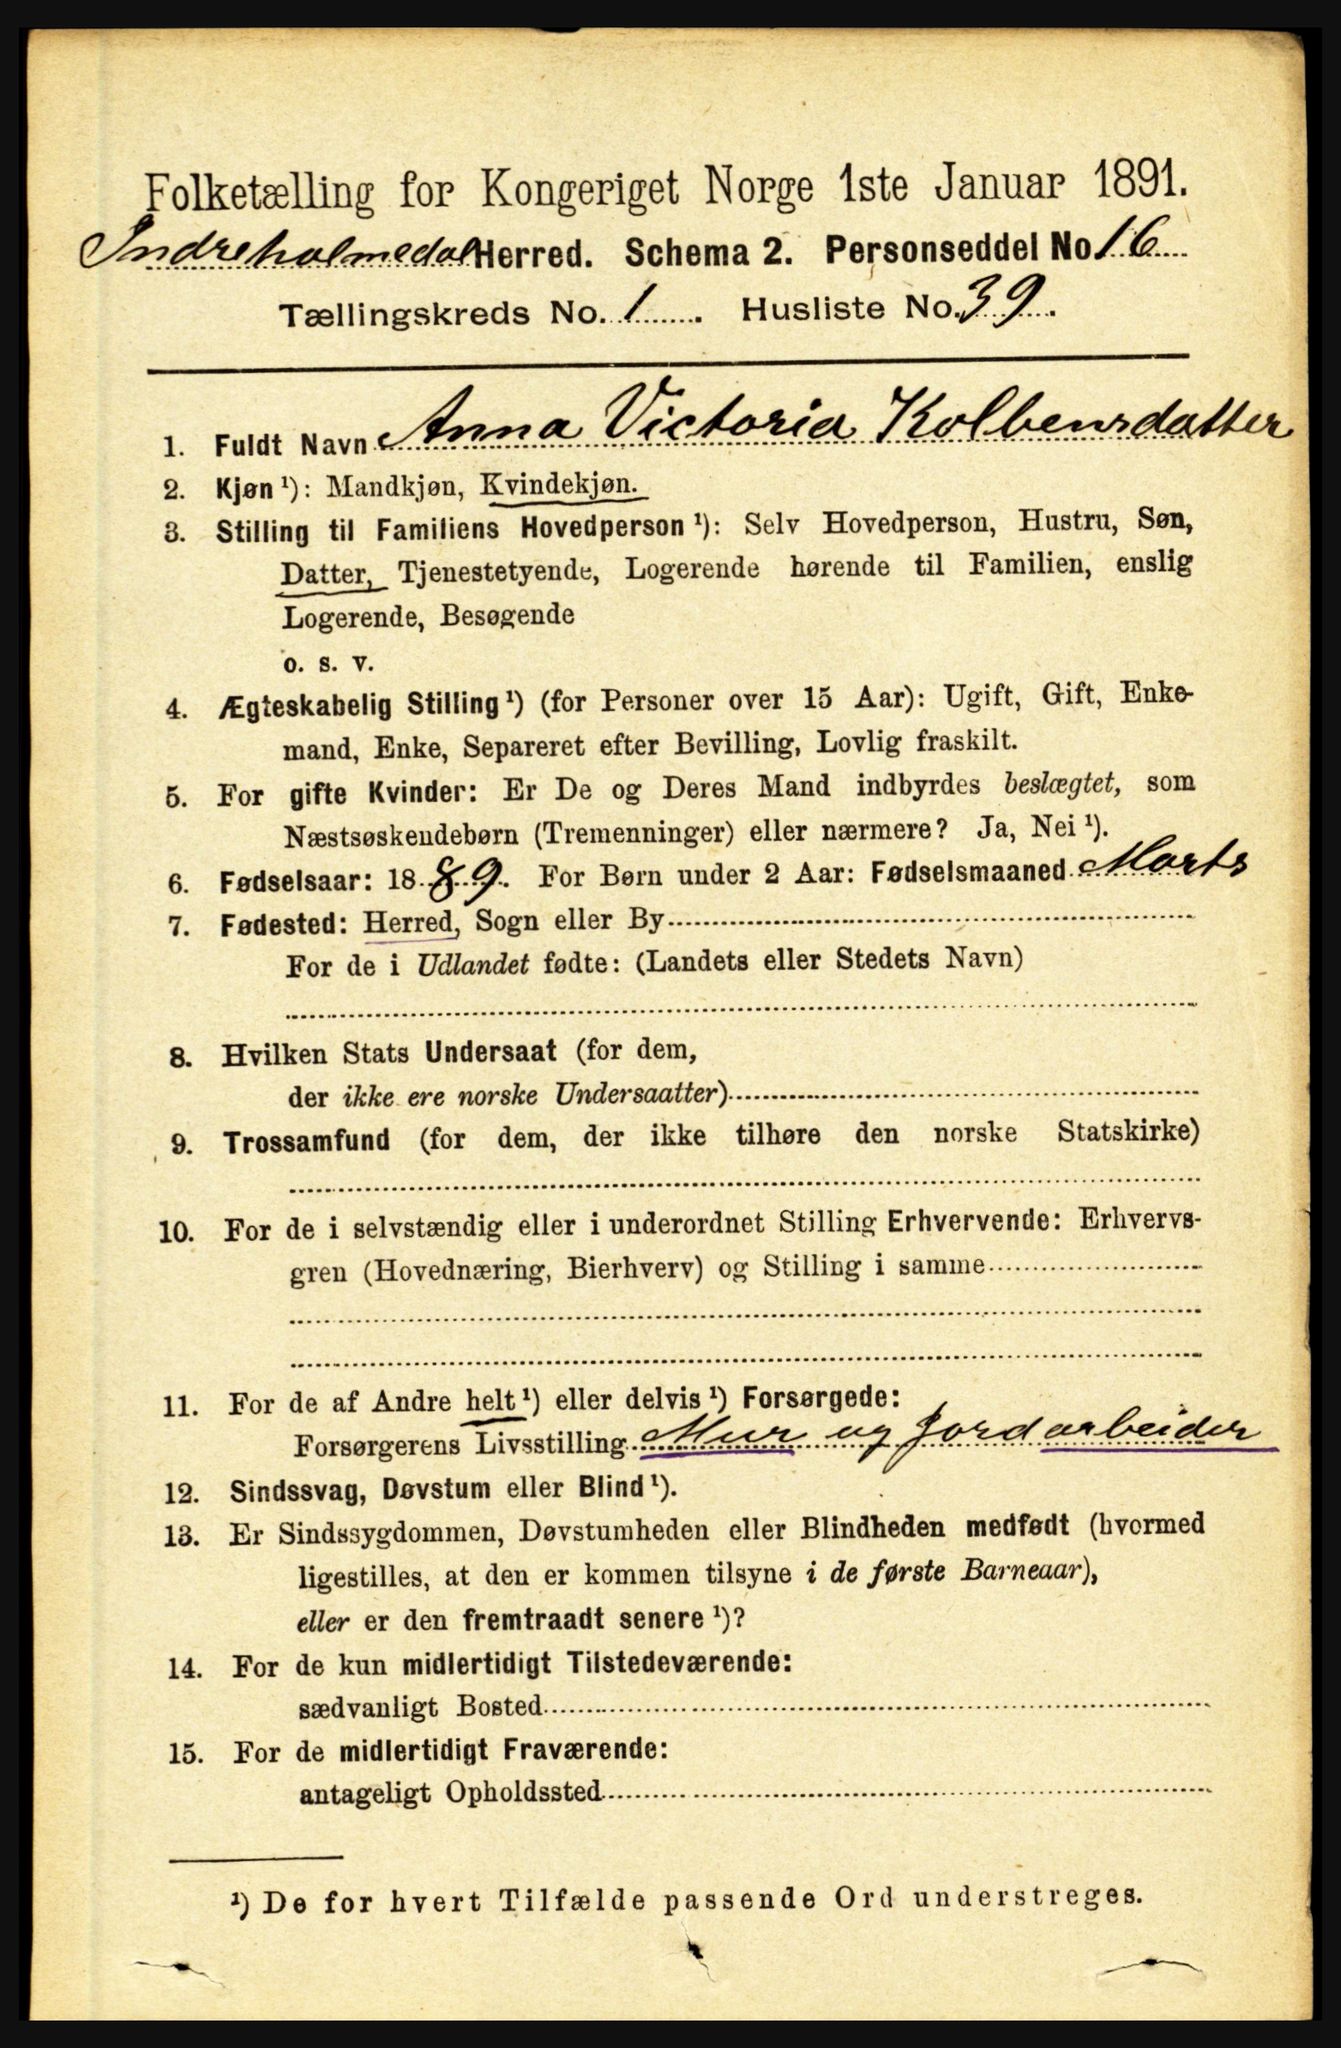 Folketælling for Kongeriget Norge 1ste Januar 1891.
Indreholmedal Herred. Schema 2. Personseddel No 16
Tællingskreds No. 1. Husliste No. 39.
1. Fuldt Navn Anna Victoria Kolbensdatter
2. Kjøn ¹): Mandkjøn, Kvindekjøn.
3. Stilling til Familiens Hovedperson ¹): Selv Hovedperson, Hustru, Søn,
Datter, Tjenestetyende, Logerende hørende til Familien, enslig
Logerende, Besøgende
o. s. v.
4. Ægteskabelig Stilling ¹) (for Personer over 15 Aar): Ugift, Gift, Enke-
mand, Enke, Separeret efter Bevilling, Lovlig fraskilt.
5. For gifte Kvinder: Er De og Deres Mand indbyrdes beslægtet, som
Næstsøskendebørn (Tremenninger) eller nærmere? Ja, Nei ¹).
6. Fødselsaar: 1889. For Børn under 2 Aar: Fødselsmaaned Marts
7. Fødested: Herred, Sogn eller By
For de i Udlandet fødte: (Landets eller Stedets Navn)
8. Hvilken Stats Undersaat (for dem,
der ikke ere norske Undersaatter)
9. Trossamfund (for dem, der ikke tilhøre den norske Statskirke)
10. For de i selvstændig eller i underordnet Stilling Erhvervende: Erhvervs-
gren (Hovednæring, Bierhverv) og Stilling i samme
11. For de af Andre helt ¹) eller delvis ¹) Forsørgede:
Forsørgerens Livsstilling Mur og Jordarbeider
12. Sindssvag, Døvstum eller Blind ¹).
13. Er Sindssygdommen, Døvstumheden eller Blindheden medfødt (hvormed
ligestilles, at den er kommen tilsyne i de første Barneaar),
eller er den fremtraadt senere ¹)?
14. For de kun midlertidigt Tilstedeværende:
sædvanligt Bosted
15. For de midlertidigt Fraværende:
antageligt Opholdssted
¹) De for hvert Tilfælde passende Ord understreges.